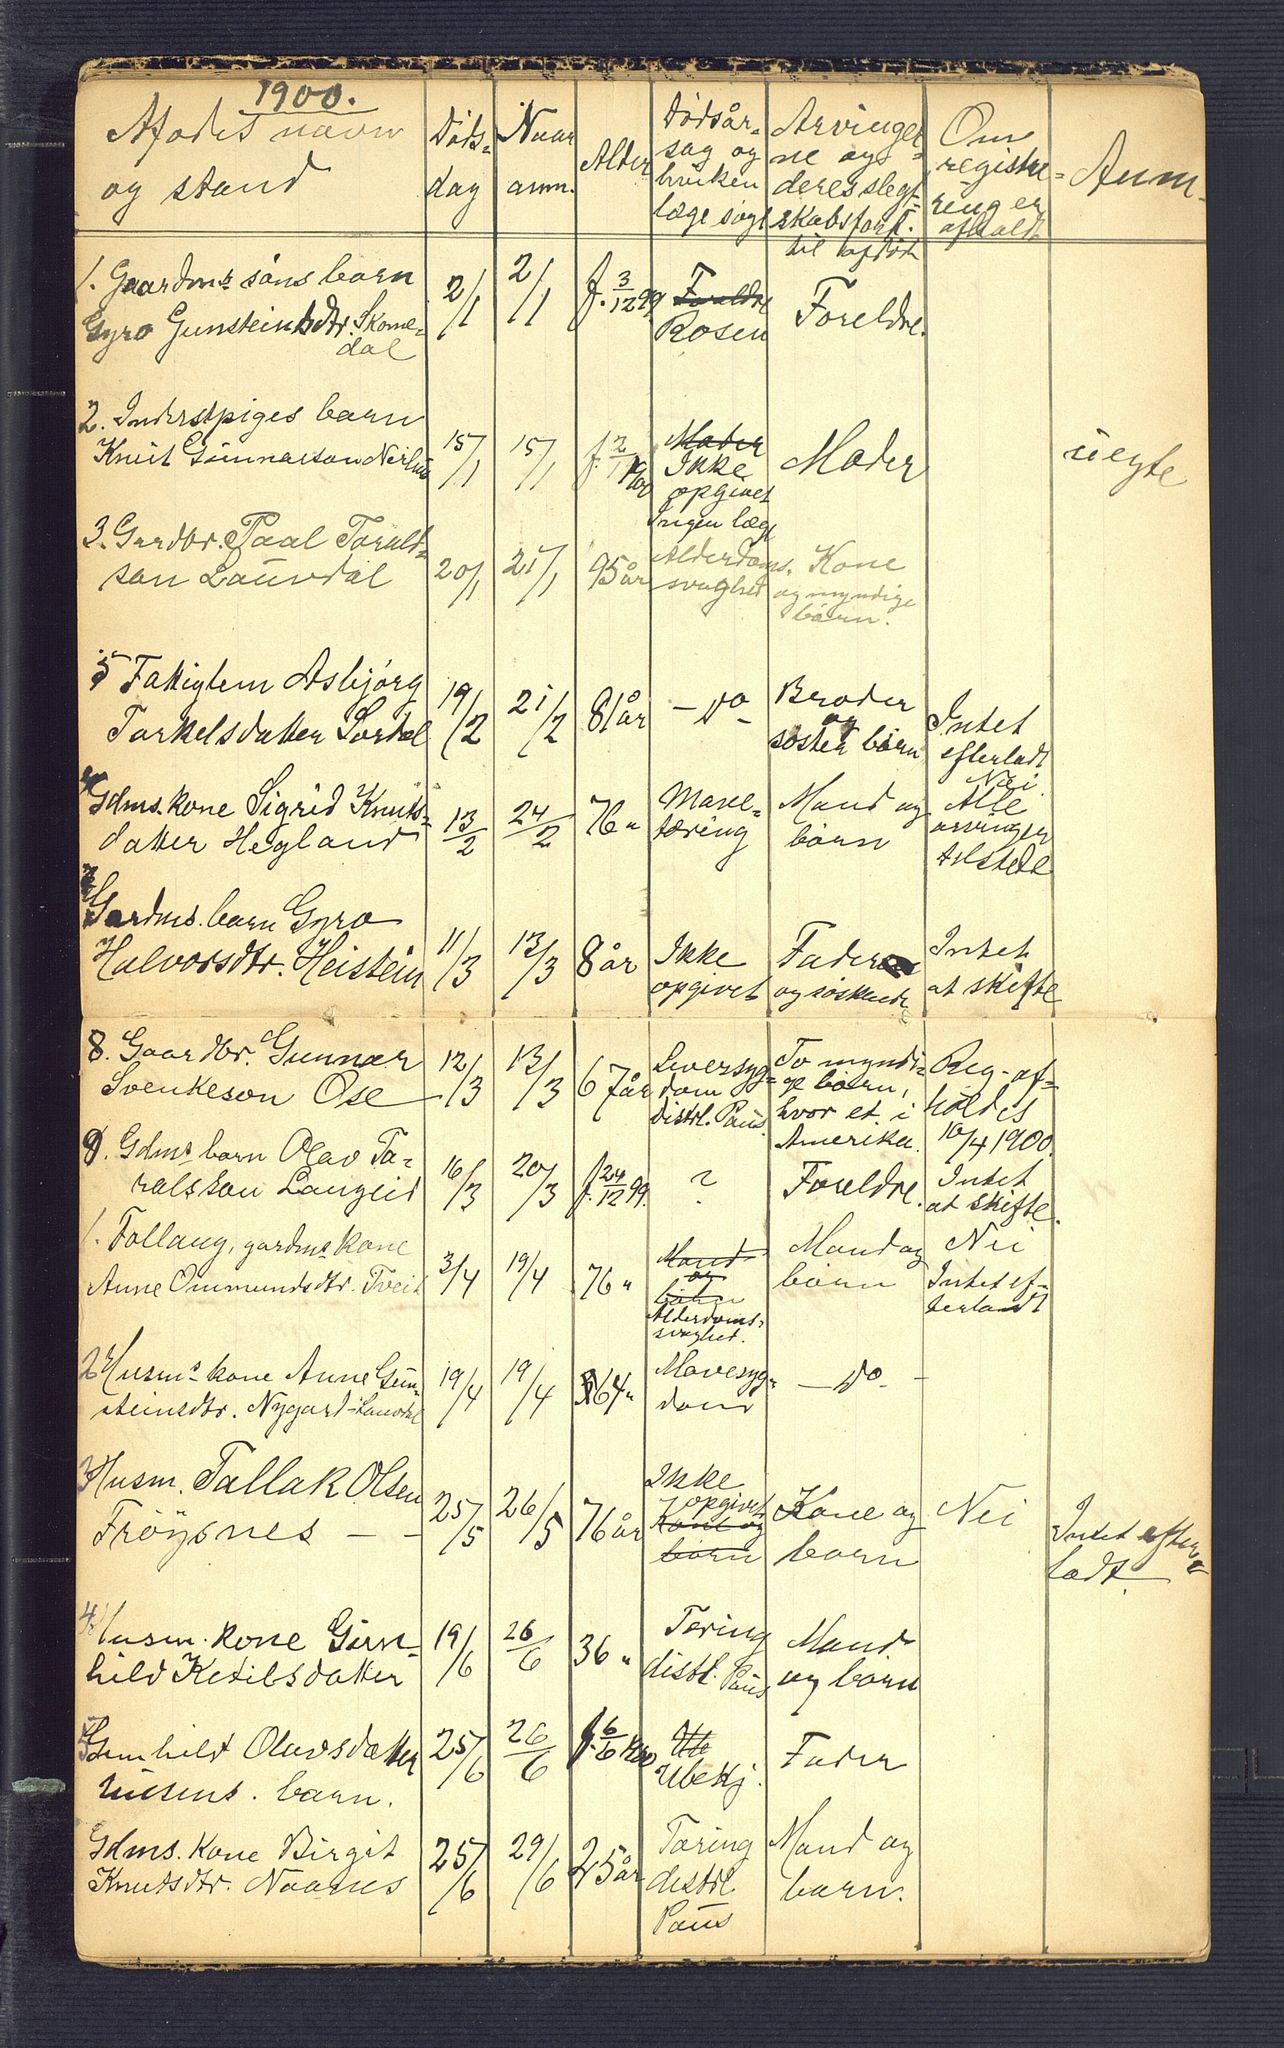 1900.
Afødes navn og stand | Døds-dag | Naar anm. | Alder | Dødsår-sag og hvilken læge søgt | Arvinger-ne og deres slegt-skabsforh. til afdøde | Om registre-ring er afholdt | Anm.
1. Gaardms søns barn
Gyro Gunsteinsdtr. Skome-dal | 2/1 | 2/1 | f. 3/12 99 | Foreldre Rosen | Foreldre.
2. Inderstpiges barn
Knut Gunnarson | 15/1 | 15/1 | f. 2/1 1900 | Moder Ikke opgivet Ingen læge | Moder | uegte
3. Gardbr. Paal Torald-
son Lauvdal | 20/1 | 21/1 | 95 år | Alderdoms-svaghed | Kone og myndige børn.
5 Fattiglem Asbjørg
Torkelsdatter Lordal | 19/2 | 21/2 | 81 år | - Do - | Broder og søster børn | Intet efterladt
Gdms. kone Sigrid Knuts-
datter Hegland | 13/2 | 24/2 | 76 " | Mave-tæring | Mand og børn | Nei. Alle arvinger tilstede
Gardms. barn Gyro
Halvorsdtr. Heistein | 11/3 | 13/3 | 8 år | Ikke opgivet | Fader og søskende | Intet at skifte
8. Gaardbr. Gunnar
Svenkeson Ose | 12/3 | 13/3 | 67 år | Leversyg-dom Distrl. Paus | To myndi-ge børn, hvor et i Amerika. | Reg. af-holdes 10/4 1900.
9. Gdms barn Olav Ta-
ralskon Langeid | 16/3 | 20/3 | f. 24/12 99. | ? | Foreldre. | Intet at skifte.
1. Follaug, gardms kone
Anne Ommundsdtr. Tveit | 3/4 | 19/4 | 76 " | Mand og børn Alderdoms-svaghet. | Mand og børn | Nei Intet ef-terladt
2 Husms kone Anne Gun-
steinsdtr. Nygard-Lauvdal | 19/4 | 19/4 | 64 " | Mavesyg-dom | - Do -
3 Husm. Tallak Olsen
Frøysnes - - | 25/5 | 26/5 | 76 år | Ikke opgivet Kone og børn | Kone og børn | Nei | Intet efter-ladt.
4. Husm. kone Gun-
hild Ketilsdatter | 19/6 | 26/6 | 36 " | Tæring distl. Paus | Mand og børn
5 Gunhild Olavsdatter
husms. barn. | 25/6 | 26/6 | f. 6/6 1900 | Ubekj. | Fader
Gdms. kone Birgit
Knutsdtr. Nomes | 25/6 | 29/6 | 25 år | Tæring distrl Paus | Mand og børn.